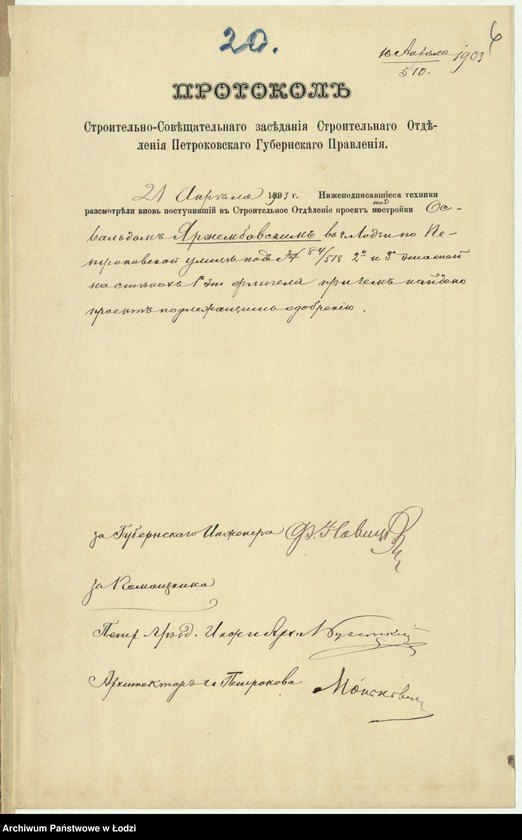 20.
6
10 Апрѣля 1903
510.
ПРОТОКОЛЪ
Строительно-Совѣщательнаго засѣданія Строительнаго Отдѣ-
ленія Петроковскаго Губернскаго Правленія.
21 Апрѣля 1903 г. Нижеподписавшіеся техники
над
разсмотрѣли вновь поступившій въ Строительное Отдѣленіе проектъ постройки Ос-
вальдомъ Яржембовскимъ въ г. Лодзи по Пе-
троковской улицѣ подъ № 84/518 2го и 3го этажей
на стѣнахъ 1 эт. флигеля при чемъ найдено
проектъ подлежащимъ одобренію.
за Губернскаго Инженера Ф. Новиц
за
Петр. Инж. Арх.
Архитекторъ г. Петрокова
Archiwum Państwowe w Łodzi